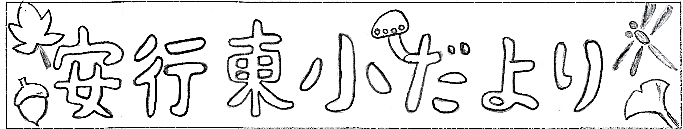 安行東小だより